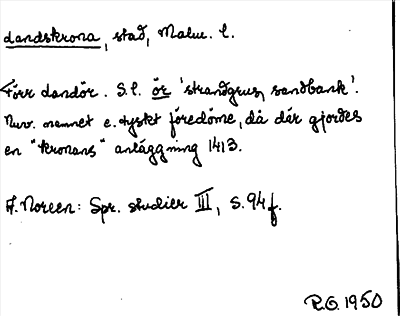 Landskrona, stad, Malm. l.
Förr Landör. S. l. ör 'strandgrus, sandbank'.
Nuv. namnet e. tyskt föredöme, då där gjordes
en "kronans" anläggning 1413.
A. Noreen: Spr. studier III, s. 94 f.
R.O. 1950